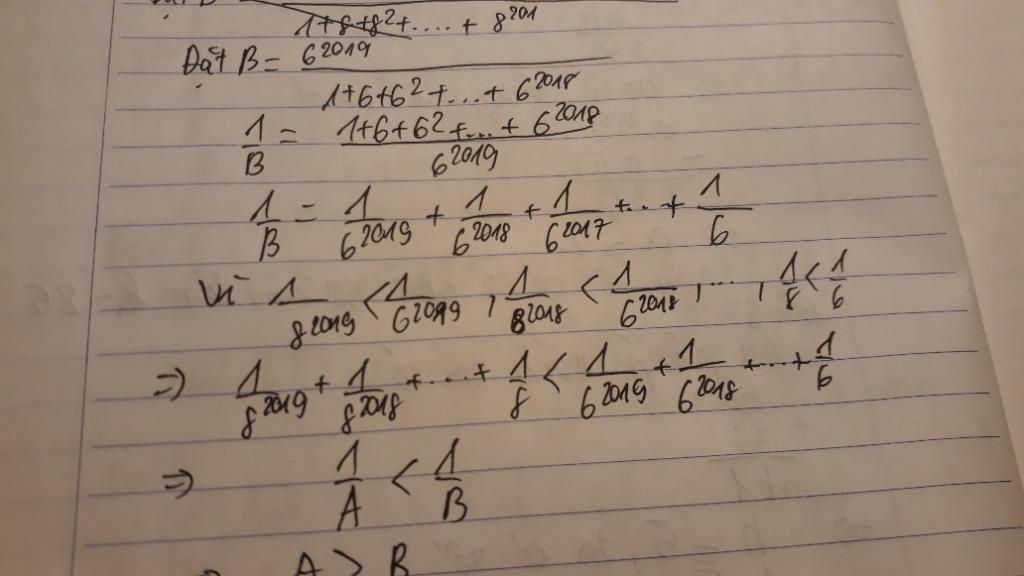 1+8+8²+....+ 8²⁰¹
Đặt B = 6²⁰¹⁹
1+6+6²+...+ 6²⁰¹⁸
1/B = (1+6+6²+...+ 6²⁰¹⁸)/6²⁰¹⁹
1/B = 1/6²⁰¹⁹ + 1/6²⁰¹⁸ + 1/6²⁰¹⁷ +...+ 1/6
Vì 1/8²⁰¹⁹ < 1/6²⁰¹⁹, 1/8²⁰¹⁸ < 1/6²⁰¹⁸, ..., 1/8 < 1/6
=> 1/8²⁰¹⁹ + 1/8²⁰¹⁸ +...+ 1/8 < 1/6²⁰¹⁹ + 1/6²⁰¹⁸ +...+ 1/6
=> 1/A < 1/B
A > B